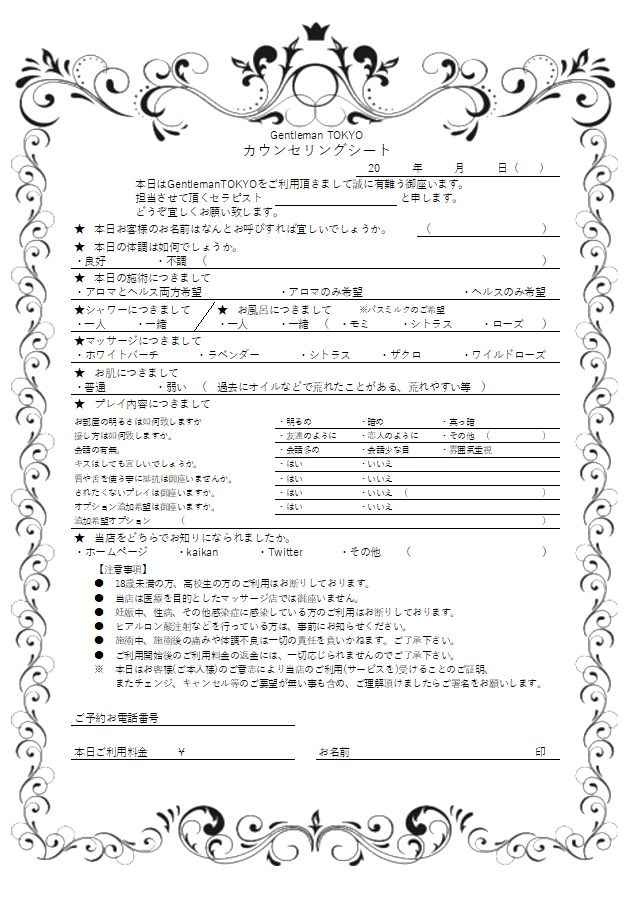 Gentleman TOKYO
カウンセリングシート
20 年 月 日（ ）
本日はGentlemanTOKYOをご利用頂きまして誠に有難う御座います。
担当させて頂くセラピスト と申します。
どうぞ宜しくお願い致します。
★ 本日お客様のお名前はなんとお呼びすれば宜しいでしょうか。 （ ）
★ 本日の体調は如何でしょうか。
・良好 ・不調 （ ）
★ 本日の施術につきまして
・アロマとヘルス両方希望 ・アロマのみ希望 ・ヘルスのみ希望
★シャワーにつきまして ／ ★ お風呂につきまして ※バスミルクのご希望
・一人 ・一緒 ・一人 ・一緒 （ ・モミ ・シトラス ・ローズ ）
★マッサージにつきまして
・ホワイトバーチ ・ラベンダー ・シトラス ・ザクロ ・ワイルドローズ
★ お肌につきまして
・普通 ・弱い （ 過去にオイルなどで荒れたことがある、荒れやすい等 ）
★ プレイ内容につきまして
お部屋の明るさは如何致しますか ・明るめ ・暗め ・真っ暗
接し方は如何致しますか。 ・友達のように ・恋人のように ・その他 （ ）
会話の有無。 ・会話多め ・会話少な目 ・雰囲気重視
キスはしても宜しいでしょうか。 ・はい ・いいえ
唇や舌を使う事に抵抗は御座いませんか。 ・はい ・いいえ
されたくないプレイは御座いますか。 ・はい ・いいえ （ ）
オプション追加希望は御座いますか。 ・はい ・いいえ
追加希望オプション （ ）
★ 当店をどちらでお知りになられましたか。
・ホームページ ・kaikan ・Twitter ・その他 （ ）
【注意事項】
● 18歳未満の方、高校生の方のご利用はお断りしております。
● 当店は医療を目的としたマッサージ店では御座いません。
● 妊娠中、性病、その他感染症に感染している方のご利用はお断りしております。
● ヒアルロン酸注射などを行っている方は、事前にお知らせください。
● 施術中、施術後の痛みや体調不良は一切の責任を負いかねます。ご了承下さい。
● ご利用開始後のご利用料金の返金には、一切応じられませんのでご了承下さい。
※ 本日はお客様(ご本人様)のご意志により当店のご利用(サービスを)受けることのご証明、
またチェンジ、キャンセル等のご要望が無い事も含め、ご理解頂けましたらご署名をお願いします。
ご予約お電話番号
本日ご利用料金 ￥ お名前 印